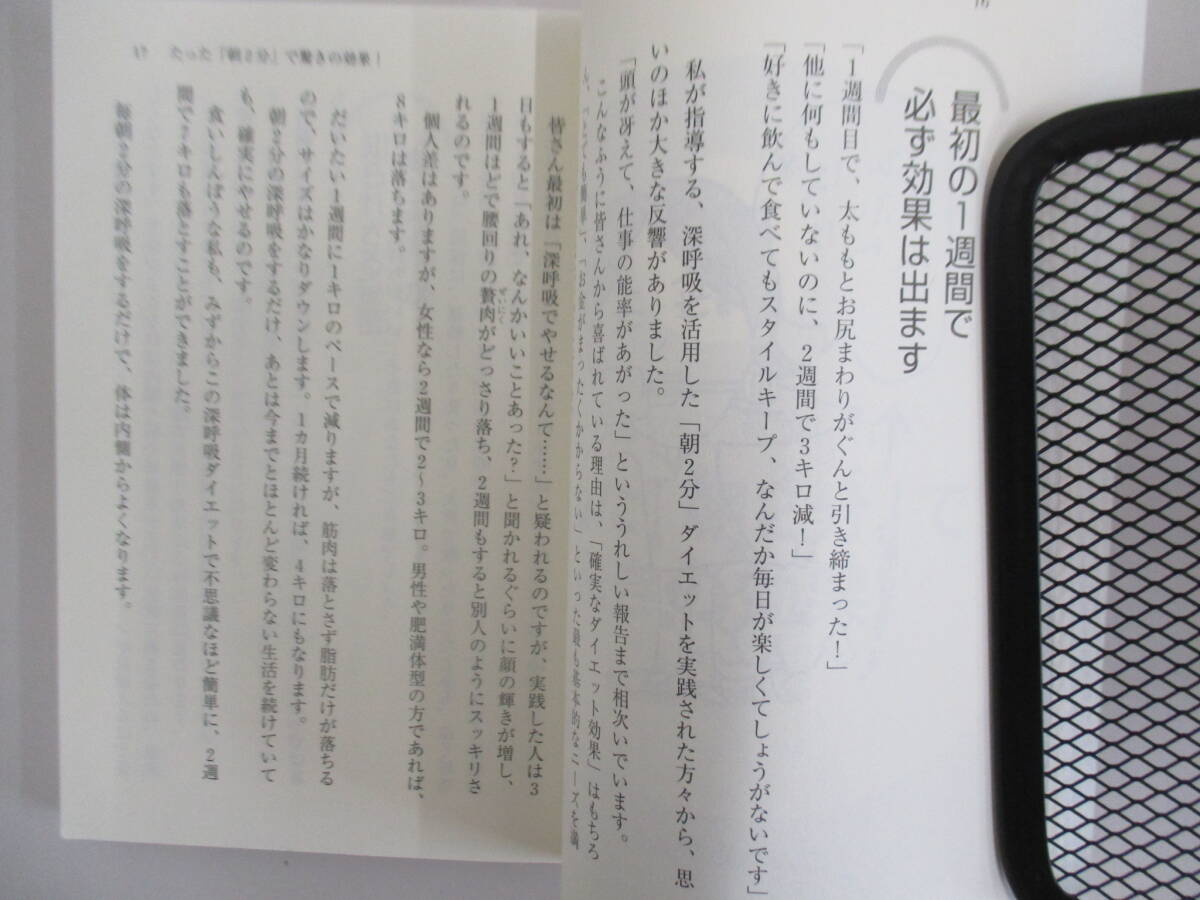 最初の1週間で
必ず効果は出ます
「1週間目で、太ももとお尻まわりがぐんと引き締まった！」
「他に何もしていないのに、2週間で3キロ減！」
「好きに飲んで食べてもスタイルキープ、なんだか毎日が楽しくてしょうがないです」
私が指導する、深呼吸を活用した「朝2分」ダイエットを実践された方々から、思
いのほか大きな反響がありました。
「頭が冴えて、仕事の能率があがった」といううれしい報告まで相次いでいます。
こんなふうに皆さんから喜ばれている理由は、「確実なダイエット効果」はもちろ
ん、「とても簡単」「お金がまったくかからない」といった最も基本的なニーズを満
17 たった「朝2分」で驚きの効果！
皆さん最初は「深呼吸でやせるなんて……」と疑われるのですが、実践した人は3
日もすると「あれ、なんかいいことあった？」と聞かれるぐらいに顔の輝きが増し、
1週間ほどで腰回りの贅肉がどっさり落ち、2週間もすると別人のようにスッキリさ
れるのです。
個人差はありますが、女性なら2週間で2〜3キロ。男性や肥満体型の方であれば、
8キロは落ちます。
だいたい1週間に1キロのペースで減りますが、筋肉は落とさず脂肪だけが落ちる
ので、サイズはかなりダウンします。1カ月続ければ、4キロにもなります。
朝2分の深呼吸をするだけ、あとは今までとほとんど変わらない生活を続けていて
も、確実にやせるのです。
食いしんぼうな私も、みずからこの深呼吸ダイエットで不思議なほど簡単に、2週
間で7キロも落とすことができました。
毎朝2分の深呼吸をするだけで、体は内臓からよくなります。